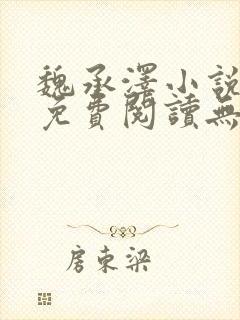 魏承澤小說
免費閱讀無
房東梁